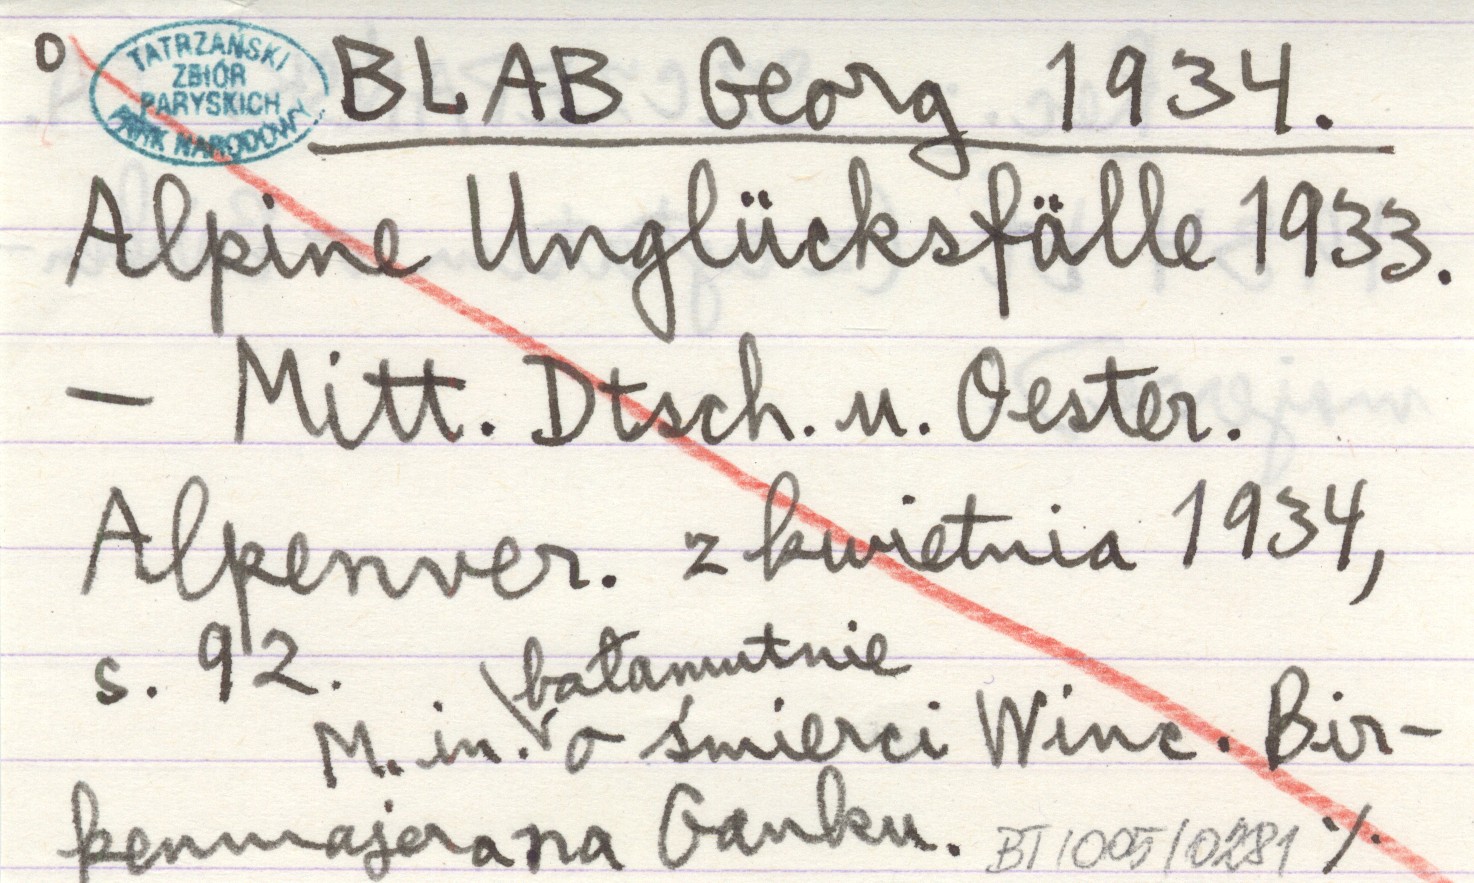 O
TATRZAŃSKI
ZBIÓR
PARYSKICH
PARK NARODOWY
BLAB Georg 1934.
Alpine Unglücksfälle 1933.
— Mitt. Dtsch. u. Oester.
Alpenver. z kwietnia 1934,
s. 92.
bałamutnie
M. in. o śmierci Winc. Bir-
kenmajera na Ganku.
BT/005/0281 ·/.